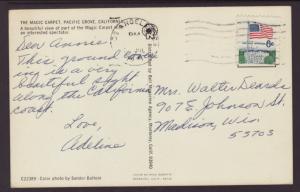 THE MAGIC CARPET, PACIFIC GROVE, CALIFORNIA
A beautiful view of part of the Magic Carpet
an interested spectator.
Dear Annie:
This ground cover-
ing is a very
beautiful sight
along the California
coast.
Love,
Adeline
C22389 - Color photo by Sandor Balatoni
6c
Mrs. Walter
907 E Johnson St.
Madison, Wis.
53703